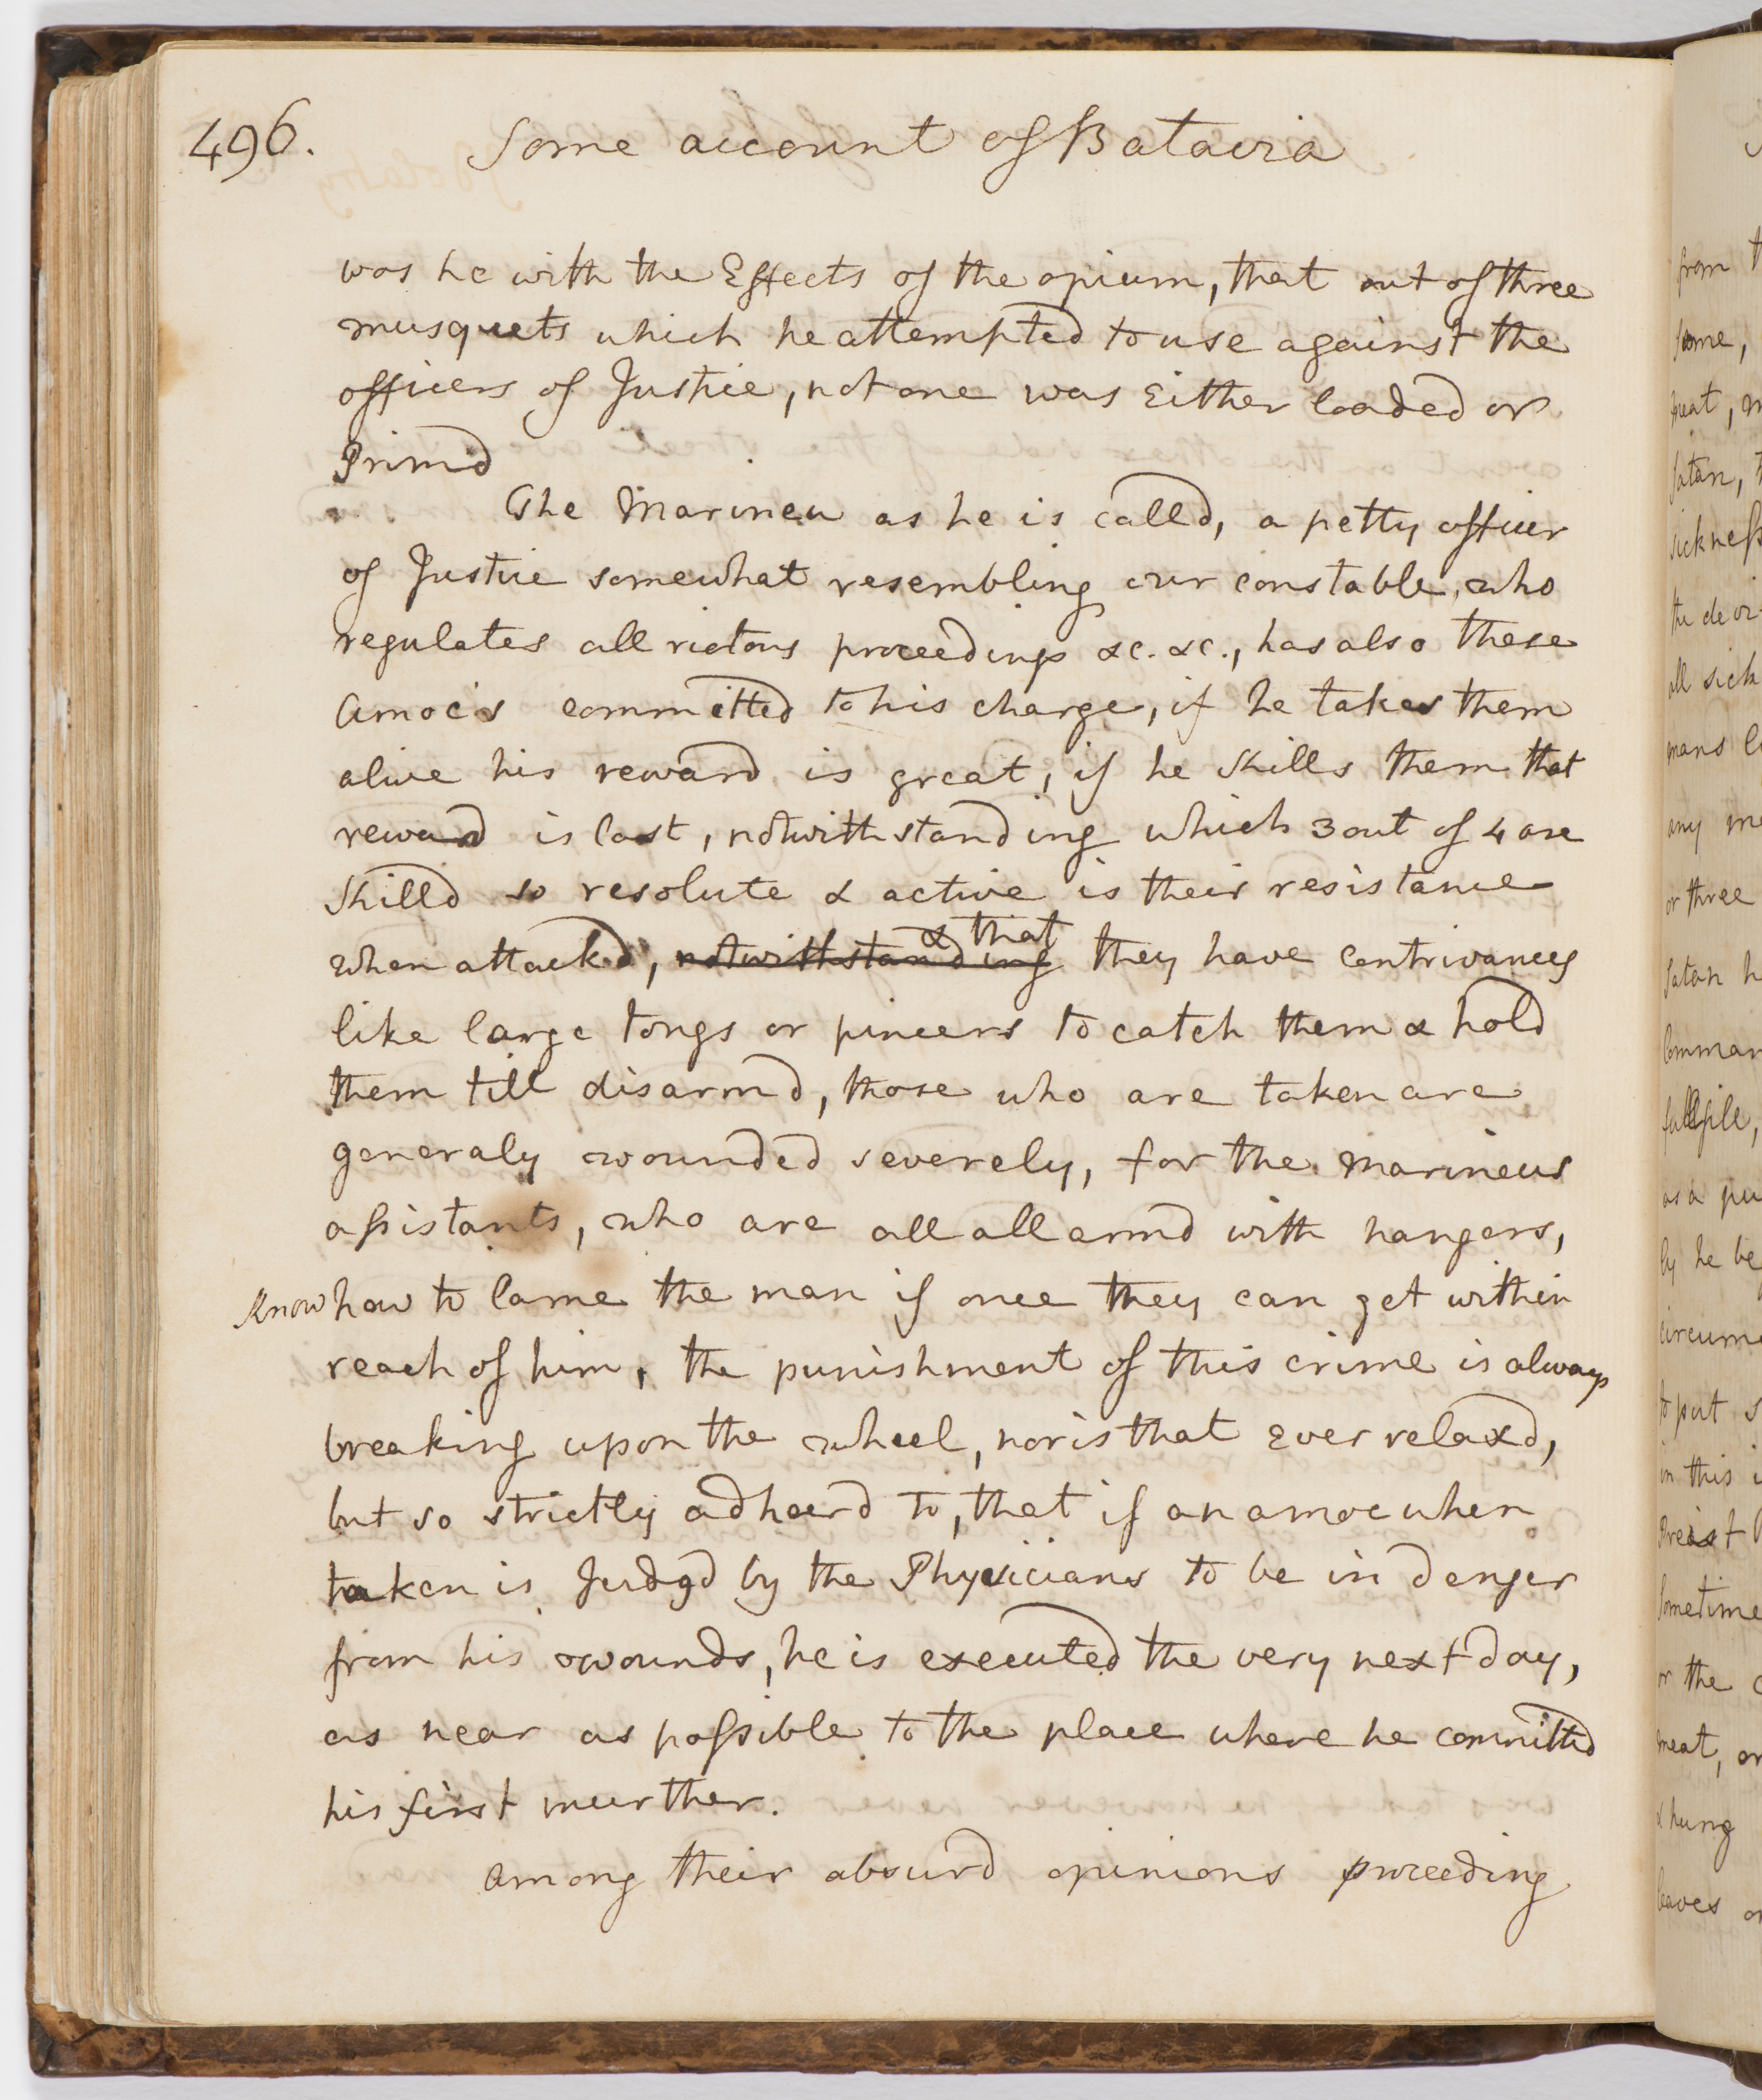 496. Some account of Batavia
was he with the Effects of the opium, that out of three
musquets which he attempted to use against the
officers of Justice, not one was Either loaded or
Primd
The Marineu as he is calld, a petty officer
of Justice somewhat resembling our constable, who
regulates all riotous proceedings &c. &c., has also these
amocs committed to his charge, if he takes them
alive his reward is great, if he kills them that
reward is lost, notwithstanding which 3 out of 4 are
killd so resolute & active is their resistance
when attackd, notwithstanding & that they have contrivances
like large tongs or pincers to catch them & hold
them till disarmd, those who are taken are
generaly wounded severely, for the marineus
assistants, who are all all armd with hangers,
know how to lame the man if once they can get within
reach of him, the punishment of this crime is always
breaking upon the wheel, nor is that ever relaxd,
but so strictly adheerd to, that if an amoc when
taken is Judgd by the Physicians to be in danger
from his wounds, he is executed the very next day,
as near as possible to the place where he committed
his first murther.
among their absurd opinions proceeding
from
some,
meat,
Satan,
sickness
all sick
mans
any
or three
Satan
as a
by he
to put
in this
Sometime
or the
meat, or
& hung
leaves